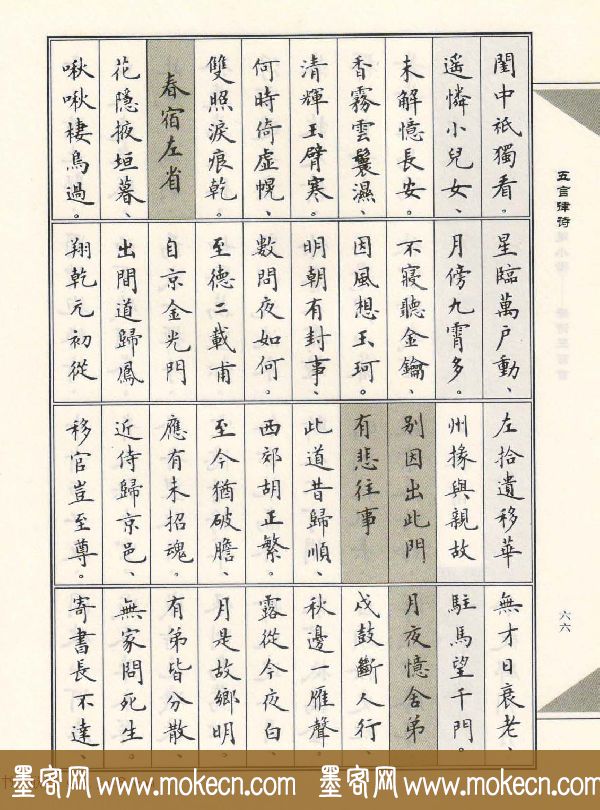 閨中祇獨看。
遥憐小兒女、
未解憶長安。
香霧雲鬟濕、
清輝玉臂寒。
何時倚虛幌、
雙照淚痕乾。
春宿左省
花隱掖垣暮、
啾啾棲鳥過。
星臨萬户動、
月傍九霄多。
不寢聽金鑰、
因風想玉珂。
明朝有封事、
數問夜如何。
至德二載甫
自京金光門
出間道歸鳳
翔乾元初從
左拾遺移華
州掾與親故
别因出此門
有悲往事
此道昔歸順、
西郊胡正繁。
至今猶破膽、
應有未招魂。
近侍歸京邑、
移官豈至尊。
無才日衰老、
駐馬望千門。
月夜憶舍弟
戍鼓斷人行、
秋邊一雁聲。
露從今夜白、
月是故鄉明。
有弟皆分散、
無家問死生。
寄書長不達、
五言律詩
六六
墨客网 www.mokecn.com 墨客网 www.mokecn.com